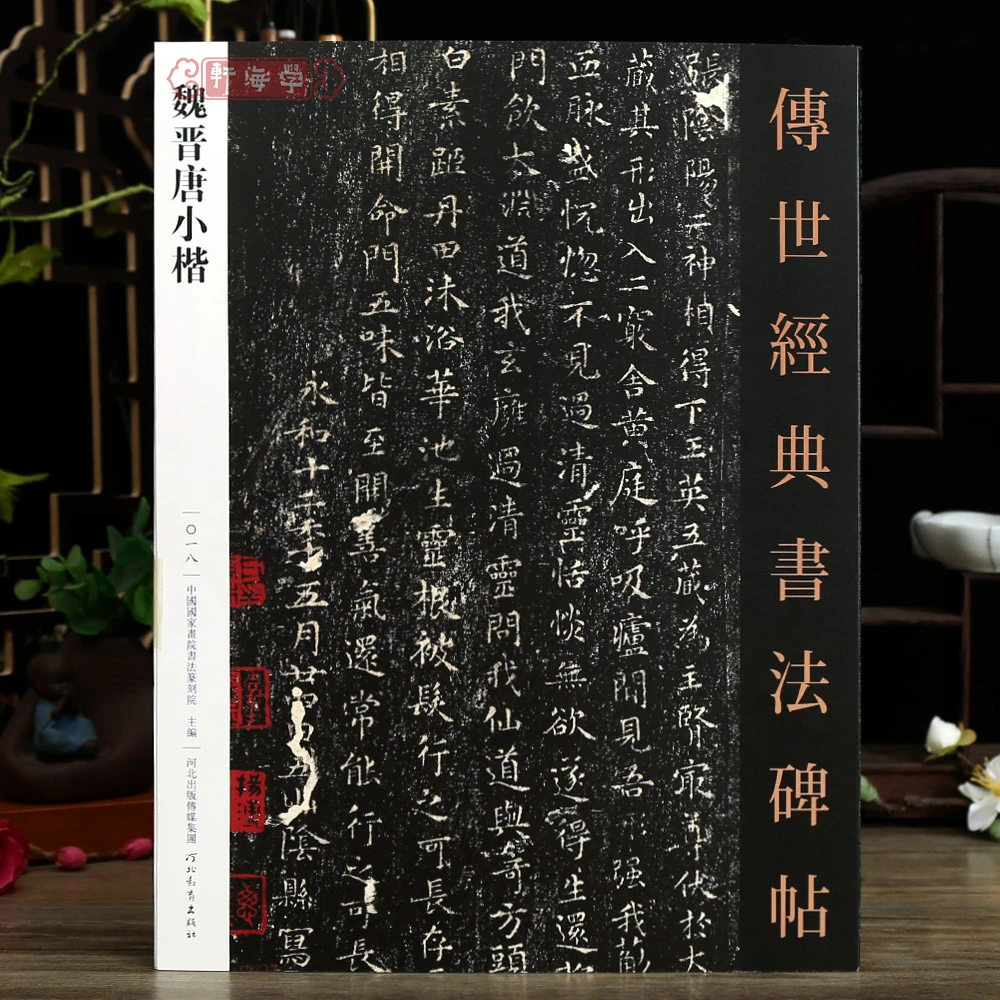 傳世經典書法碑帖
張陰陽二神相得下玉英五藏為主腎冣尊伏於大
藏其形出入二竅舍黃庭呼吸廬間見吾形強我筋
血脉盛恍惚不見過清靈恬惔無欲遂得生還
門飲大淵道我玄廱過清靈問我仙道與奇方頭
白素距丹田沐浴華池生靈根被髮行之可長存
相得開命門五味皆至開善氣還常能行之可長
永和十二年五月廿四日五山陰縣寫
學海軒
魏晋唐小楷
〇一八
中國國家畫院書法篆刻院 主编
河北出版傳媒集團
河北教育出版社